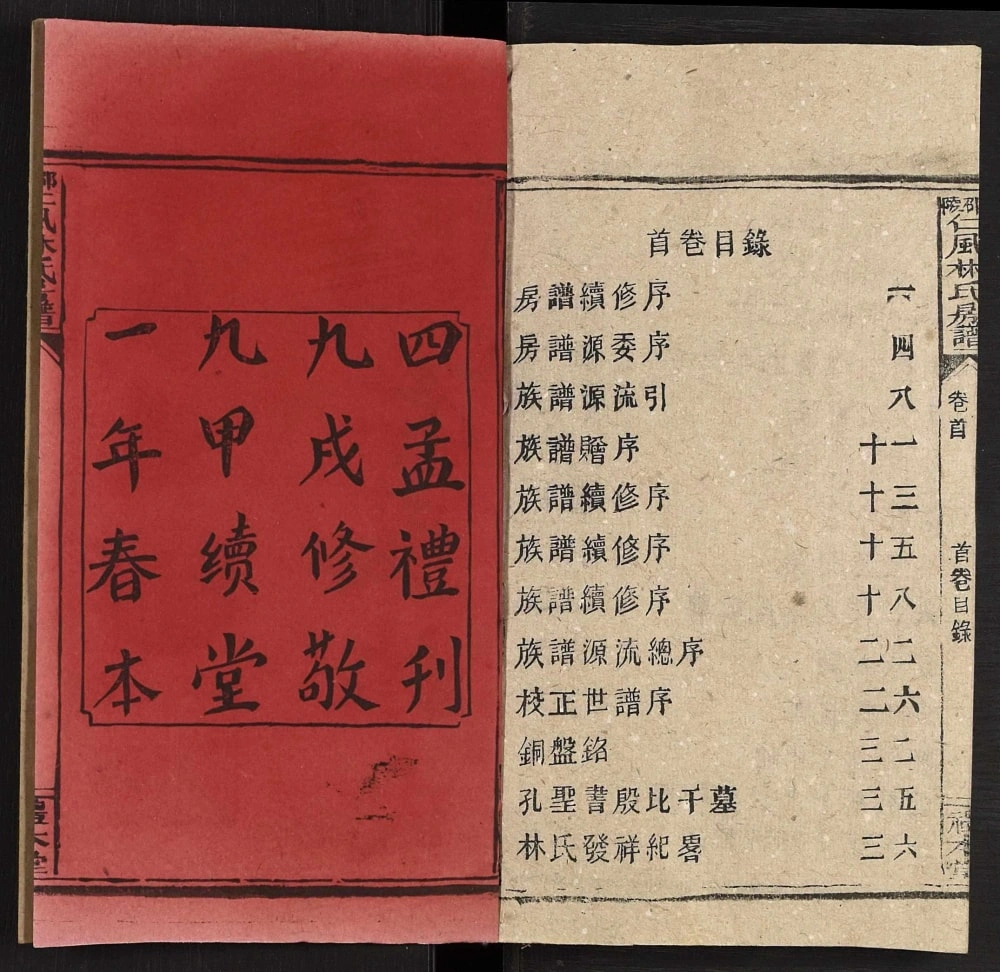 一九九四
年甲戌孟
春续修禮
本堂敬刊
首巻目錄
房譜續修序
房譜源委序 四
族譜源流引 八
族譜贈序 十一
族譜續修序 十三
族譜續修序 十五
族譜續修序 十八
族譜源流總序 二二
校正世譜序 二六
銅盤銘 三二
孔聖書殷比干墓 三五
林氏發祥紀畧 三六
邵陵仁風林氏房譜
巻首
首巻目錄